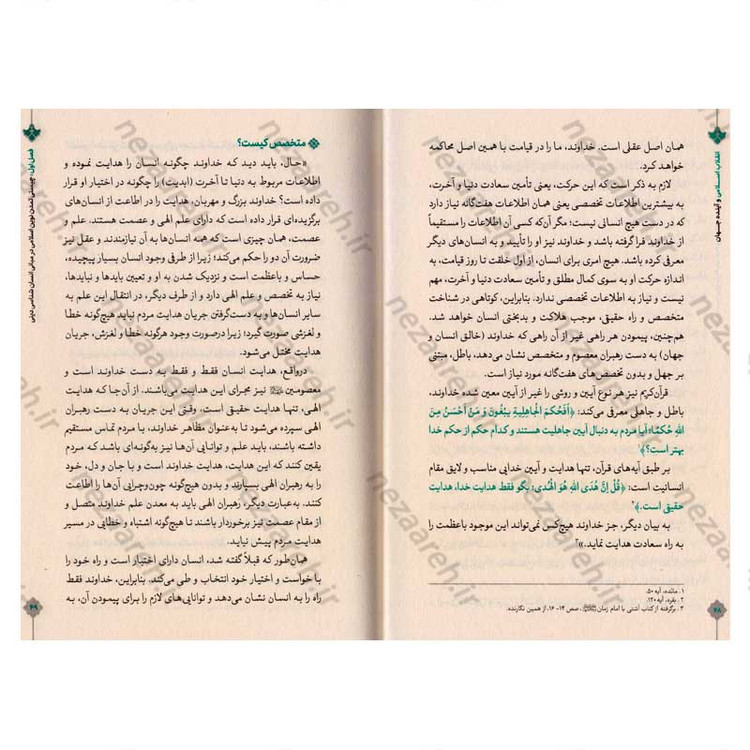 انقلاب اسلامی و آینده جهان
همان اصل عقلی است. خداوند، ما را در قیامت با همین اصل محاکمه
خواهد کرد.
لازم به ذکر است که این حرکت، یعنی تأمین سعادت دنیا و آخرت،
به بیشترین اطلاعات تخصصی یعنی همان اطلاعات هفت‌گانه نیاز دارد
که در دست هیچ انسانی نیست؛ مگر آن‌که کسی آن اطلاعات را مستقیماً
از خداوند فراگرفته باشد و خداوند نیز او را تأیید و به انسان‌های دیگر
معرفی کرده باشد. هیچ امری برای انسان، از اول خلقت تا روز قیامت، به
اندازه حرکت او به سوی کمال مطلق و تأمین سعادت دنیا و آخرت، مهم
نیست و نیاز به اطلاعات تخصصی ندارد. بنابراین، کوتاهی در شناخت
متخصص و راه حقیق، موجب هلاکت و بدبختی انسان خواهد شد.
هم‌چنین، پیمودن هر راهی غیر از آن راهی که خداوند (خالق انسان و
جهان) به دست رهبران معصوم و متخصص نشان می‌دهد، باطل، مبتنی
بر جهل و بدون تخصص‌های هفت‌گانه مورد نیاز است.
قرآن‌کریم نیز هر نوع آیین و روشی را غیر از آیین معین شده خداوند،
باطل و جاهلی معرفی می‌کند: ﴿أَفَحُكمَ الجَاهِلِیةِ یبغُونَ وَ مَنْ أَحْسَنُ مِنَ
اللَّهِ حُكمًا؛ آیا مردم به دنبال آیین جاهلیت هستند و کدام حکم از حکم خدا
بهتر است؟﴾۱
بر طبق آیه‌های قرآن، تنها هدایت و آیین خدایی مناسب و لایق مقام
انسانیت است: ﴿قُلْ إِنَّ هُدَى اللَّهِ هُوَ الْهُدى؛ بگو فقط هدایت خدا، هدایت
حقیقی است.﴾۲
به بیان دیگر، جز خداوند هیچ‌کس نمی‌تواند این موجود باعظمت را
به راه سعادت هدایت نماید.»۳
۱. مائده، آیه ۵۰.
۲. بقره، آیه ۱۲۰.
۳. برگرفته از کتاب آشتی با امام زمان، صص ۱۴-۱۶، از همین نگارنده.
۶۸
فصل اول:
متخصص کیست؟
«حال، باید دید که خداوند چگونه انسان را هدایت نموده و
اطلاعات مربوط به دنیا تا آخرت (ابدیت) را چگونه در اختیار او قرار
داده است؟ خداوند بزرگ و مهربان، هدایت را در اطاعت از انسان‌های
برگزیده‌ای قرار داده است که دارای علم الهی و عصمت هستند. علم و
عصمت، همان چیزی است که همه انسان‌ها به آن نیازمندند و عقل نیز
ضرورت آن دو را حکم می‌کند؛ زیرا از طرفی وجود انسان بسیار پیچیده،
حساس و باعظمت است و نزدیک شدن به او و تعیین بایدها و نبایدها،
نیاز به تخصص و علم الهی دارد و از طرف دیگر، در انتقال این علم به
سایر انسان‌ها و به دست‌گرفتن جریان هدایت مردم نباید هیچ‌گونه خطا
و لغزشی صورت گیرد؛ زیرا درصورت وجود هرگونه خطا و لغزش، جریان
هدایت مختل می‌شود.
درواقع، هدایت انسان فقط و فقط به دست خداوند است و
معصومین نیز مجرای این هدایت می‌باشند. از آن‌جا که هدایت
الهی، تنها هدایت حقیقی است. وقتی این جریان به دست رهبران
الهی سپرده می‌شود تا به‌عنوان مظاهر خداوند، با مردم تماس مستقیم
داشته باشند، باید علم و توانایی آن‌ها نیز به‌گونه‌ای باشد که مردم
یقین کنند که این هدایت، هدایت خداوند است و با جان و دل، خود
را به رهبران الهی بسپارند و بدون هیچ‌گونه چون‌وچرایی آن‌ها را اطاعت
کنند. به‌عبارت دیگر، رهبران الهی باید به معدن علم خداوند متصل و
از مقام عصمت نیز برخوردار باشند تا هیچ‌گونه اشتباه و خطایی در مسیر
هدایت مردم پیش نیاید.
همان‌طور که قبلاً گفته شد، انسان دارای اختیار است و راه خود را
با خواست و اختیار خود انتخاب و طی می‌کند. بنابراین، خداوند فقط
راه را به انسان نشان می‌دهد و توانایی‌های لازم را برای پیمودن آن، به
۶۹
nezaareh.ir